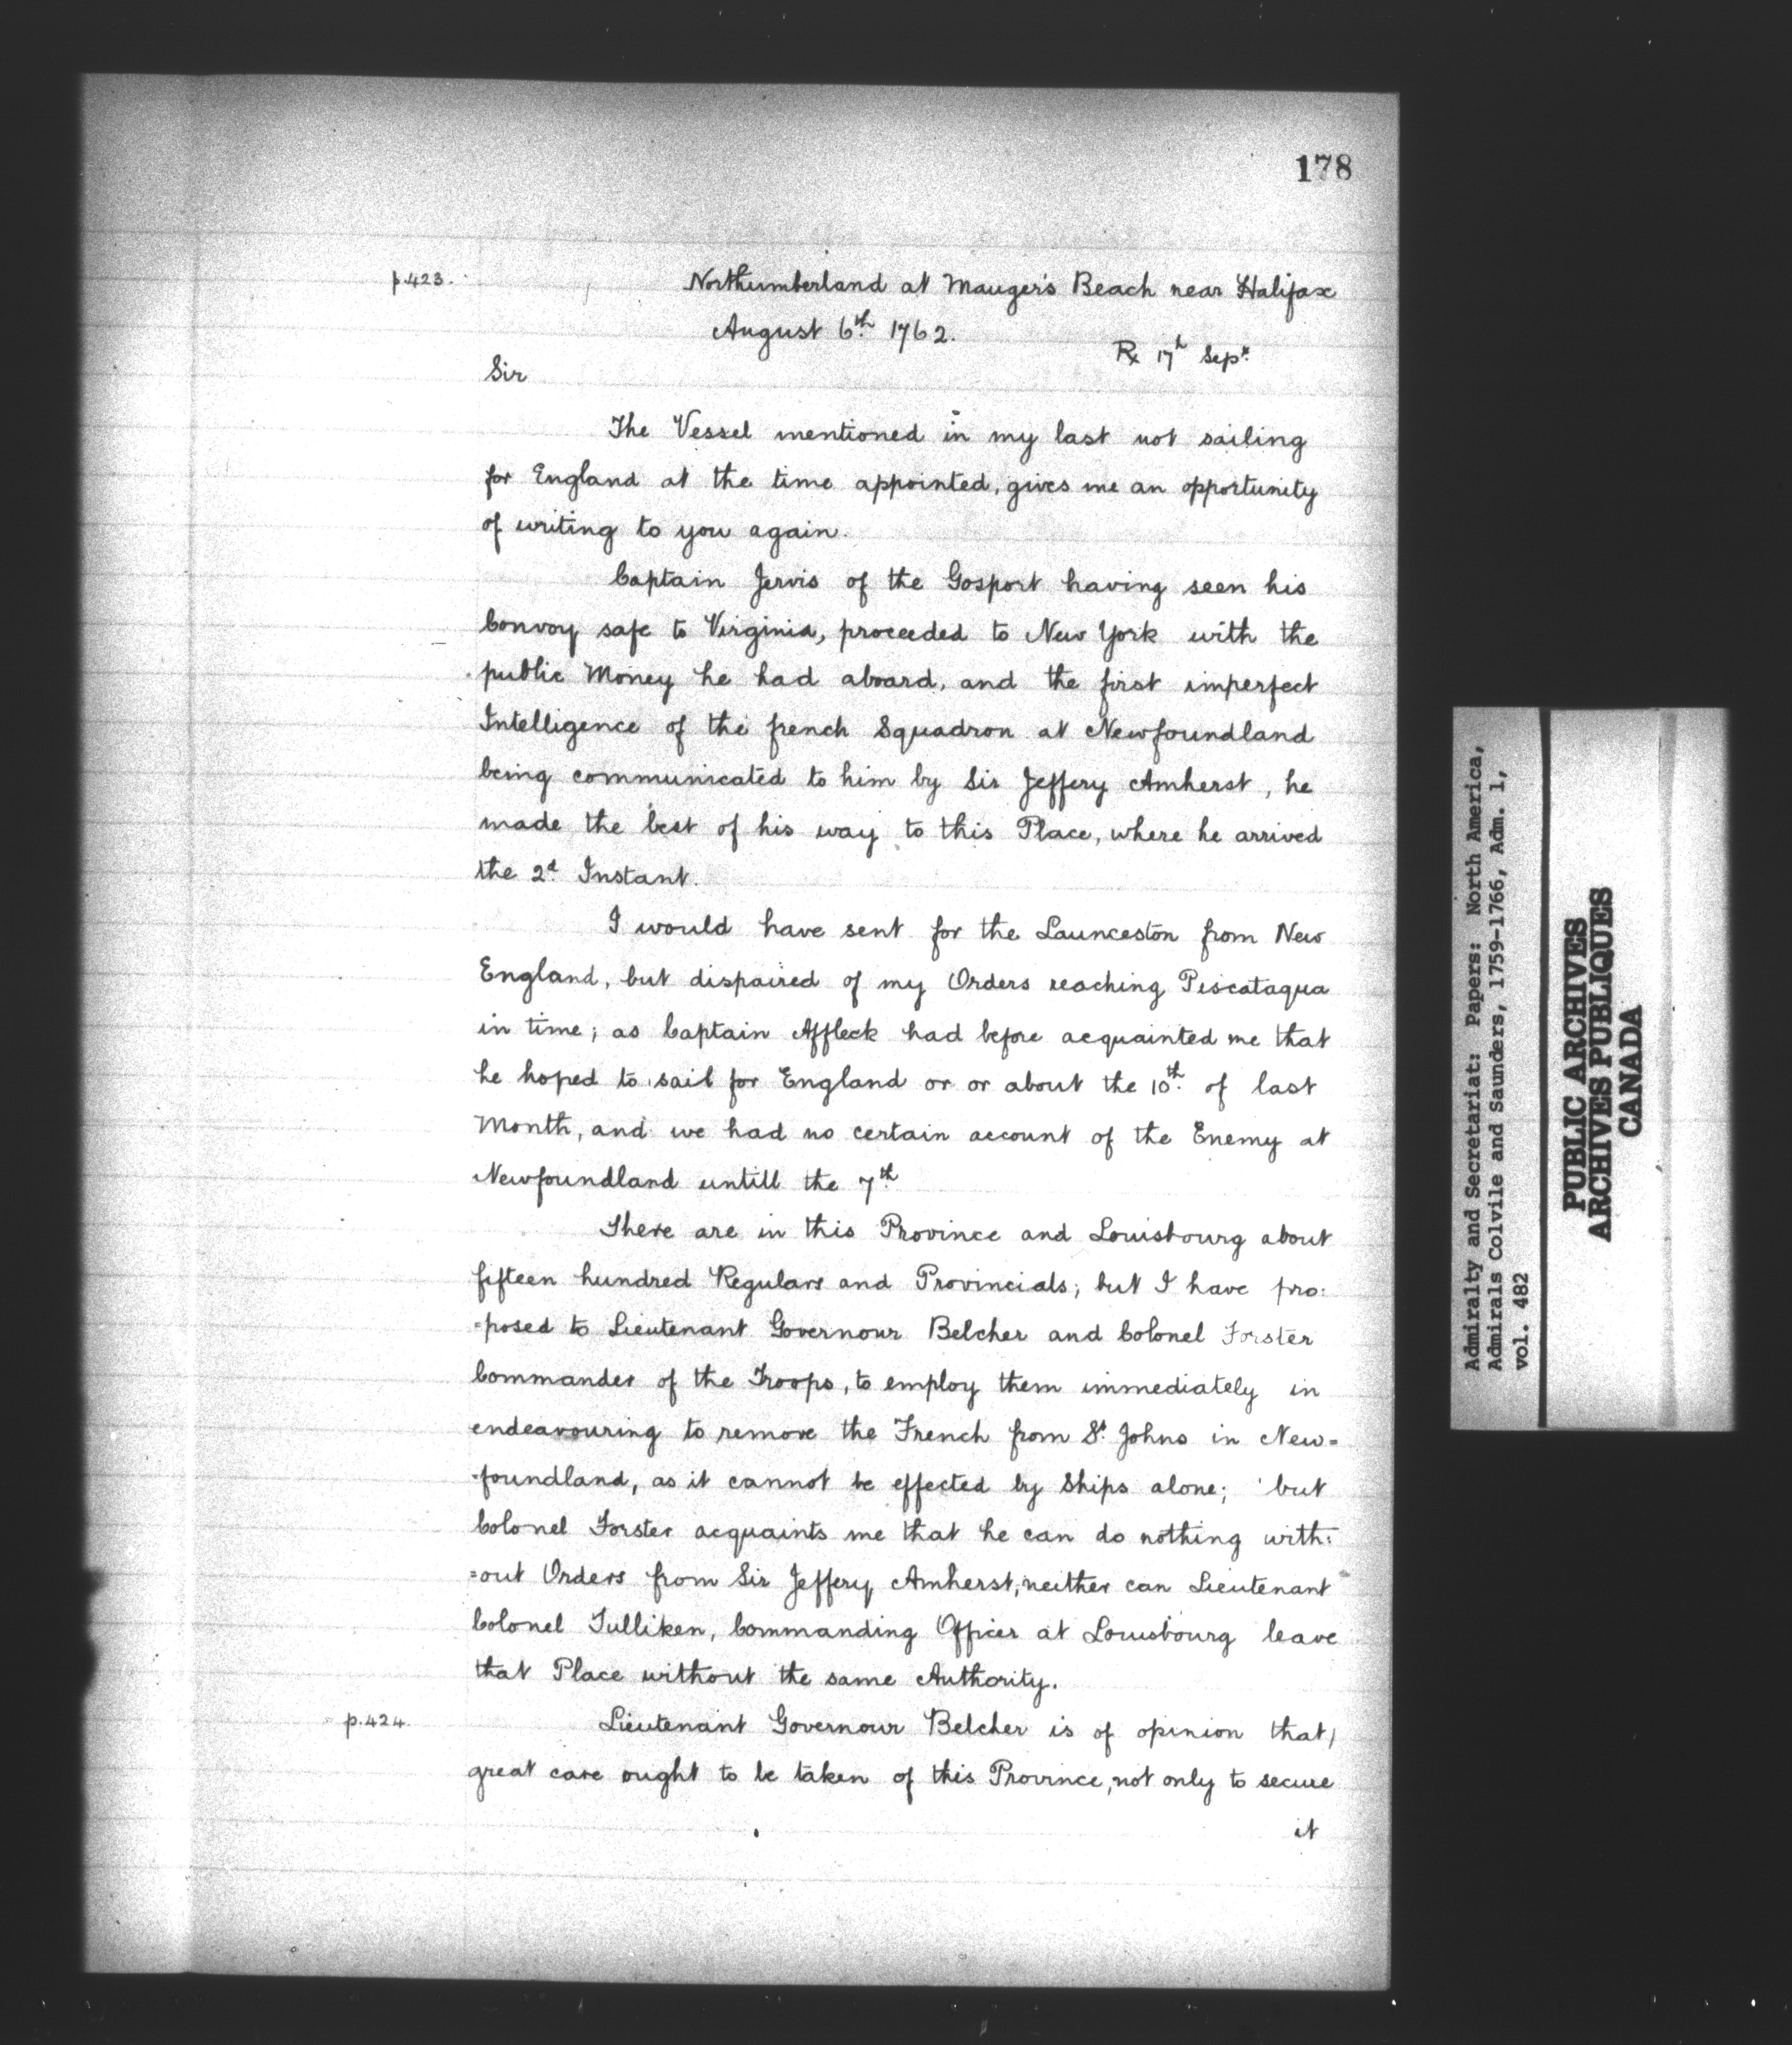 178
p.423.
Northumberland at Mauger's Beach near Halifax
August 6th 1762.
Rx 17th Sept.
Sir
The Vessel mentioned in my last not sailing
for England at the time appointed, gives me an opportunity
of writing to you again.
Captain Jervis of the Gosport having seen his
Convoy safe to Virginia, proceeded to New York with the
public Money he had aboard, and the first imperfect
Intelligence of the french Squadron at Newfoundland
being communicated to him by Sir Jeffery Amherst, he
made the best of his way to this Place, where he arrived
the 2d. Instant.
I would have sent for the Launceston from New
England, but dispaired of my Orders reaching Piscataqua
in time; as Captain Affleck had before acquainted me that
he hoped to sail for England or or about the 10th. of last
Month, and we had no certain account of the Enemy at
Newfoundland untill the 7th.
There are in this Province and Louisbourg about
fifteen hundred Regulars and Provincials; but I have pro:
=posed to Lieutenant Governour Belcher and Colonel Forster
Commander of the Troops, to employ them immediately in
endeavouring to remove the French from St. Johns in New=
=foundland, as it cannot be effected by Ships alone; but
Colonel Forster acquaints me that he can do nothing with:
=out Orders from Sir Jeffery Amherst, neither can Lieutenant
Colonel Tulliken, Commanding Officer at Louisbourg leave
that Place without the same Authority.
p.424.
Lieutenant Governour Belcher is of opinion that
great care ought to be taken of this Province, not only to secure
it
Admiralty and Secretariat: Papers: North America,
Admirals Colvile and Saunders, 1759-1766, Adm. 1,
vol. 482
PUBLIC ARCHIVES
ARCHIVES PUBLIQUES
CANADA